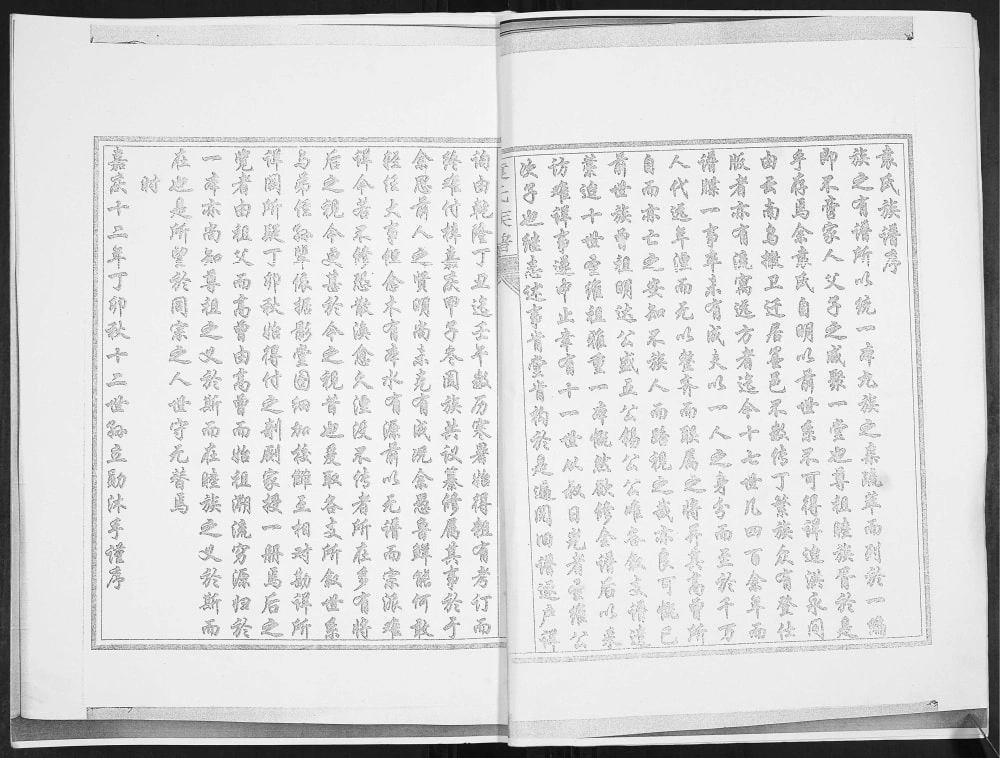 袁氏族谱序
族之有谱所以统一本九族之条流萃而列于一编
即不啻家人父子之咸聚一堂也尊祖睦族胥於是
乎存焉余袁氏自明以前世系不可得详迨洪永间
由云南乌撒卫迁居墨邑不数传丁繁族众有登仕
版者亦有流寓远方者迄今十七世几四百余年而
谱牒一事卒未有成夫以一人之身分而至於千万
人代远年湮而无以整齐而联属之将并其高曾所
自而亦亡之安知不族人而路视之哉亦良可慨已
前世族曾祖明达公盛五公锡公公唯各叙支谱逮
叶追十世云维祖虽重一本慨然欲修全谱后以采
访难详事遂中止章有十一世从叔日光者云维公
次子也继志述事肯堂肯构於是遍阅旧谱遍户详
询由乾隆丁丑迄壬午数历寒暑始得粗有考订而
终难付梓嘉庆甲子冬阖族共议纂修属其事於予
余思前人之贤明尚未克有成况余愚鲁鲜能何敢
轻任大事但念木有本水有源前以无谱而宗派难
详今若不修恐散涣愈久湮没不传者所在多有将
后之视今更甚於今之视昔也爰取各支所叙世系
与弟侄孙辈依据影堂图细加校雠互相对勘详所
详阙所疑丁卯秋始得付之剞劂家授一册焉后之
览者由祖父而高曾由高曾而始祖溯流穷源归於
一本亦尚知尊祖之义於斯而在睦族之义於斯而
在也是所望於同宗之人世守无替焉
时
嘉庆十二年丁卯秋十二世孙立勋沐手谨序